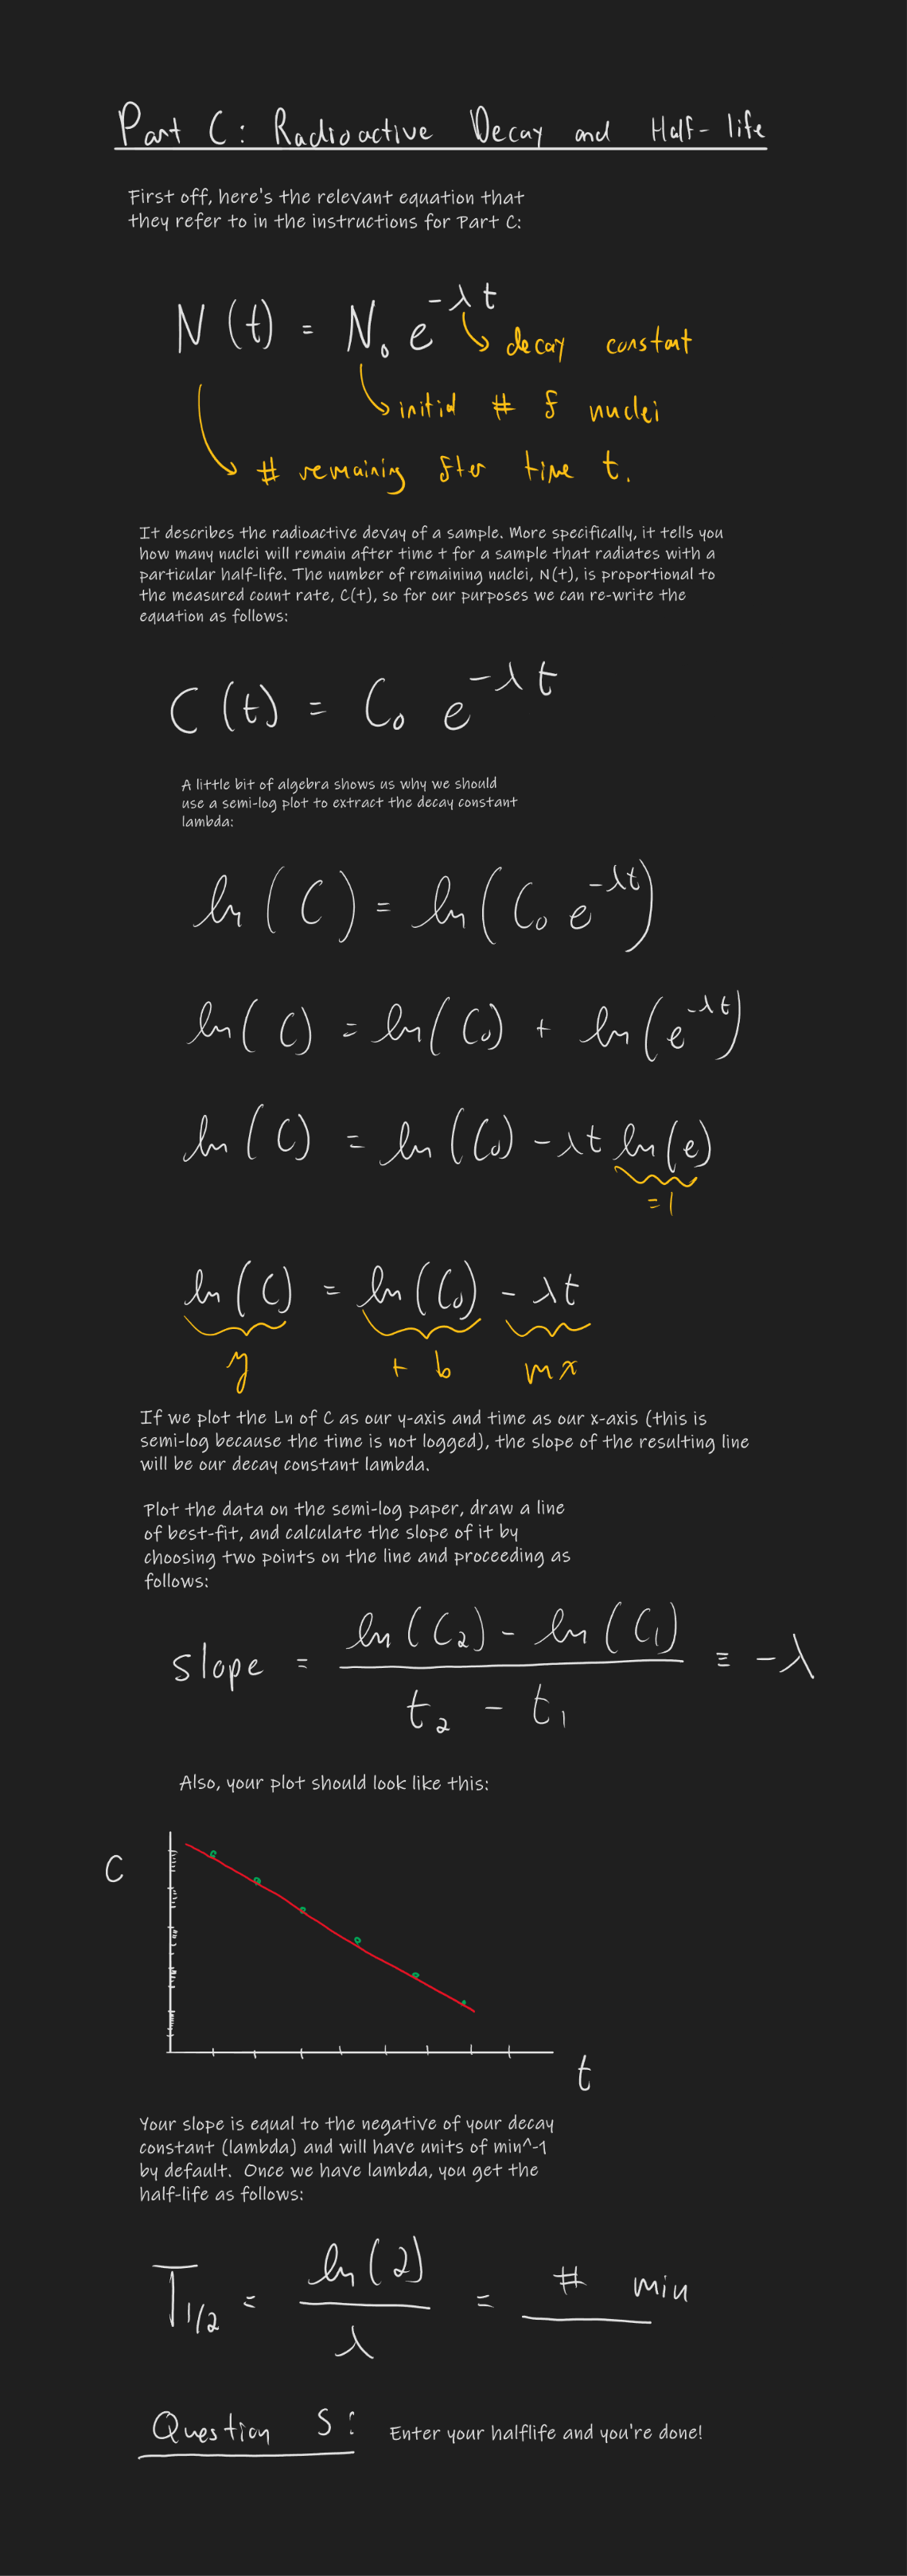 Part C: Radioactive Decay and Half-life
First off, here's the relevant equation that
they refer to in the instructions for Part C:
N(t) = N₀ e^{-λt}
decay constant
initial # of nuclei
# remaining after time t.
It describes the radioactive devay of a sample. More specifically, it tells you
how many nuclei will remain after time t for a sample that radiates with a
particular half-life. The number of remaining nuclei, N(t), is proportional to
the measured count rate, C(t), so for our purposes we can re-write the
equation as follows:
C(t) = C₀ e^{-λt}
A little bit of algebra shows us why we should
use a semi-log plot to extract the decay constant
lambda:
ln(C) = ln(C₀ e^{-λt})
ln(C) = ln(C₀) + ln(e^{-λt})
ln(C) = ln(C₀) - λt ln(e)
= 1
ln(C) = ln(C₀) - λt
y + b mx
If we plot the Ln of C as our y-axis and time as our x-axis (this is
semi-log because the time is not logged), the slope of the resulting line
will be our decay constant lambda.
Plot the data on the semi-log paper, draw a line
of best-fit, and calculate the slope of it by
choosing two points on the line and proceeding as
follows:
slope = (ln(C₂) - ln(C₁)) / (t₂ - t₁) ≡ -λ
Also, your plot should look like this:
C
t
Your slope is equal to the negative of your decay
constant (lambda) and will have units of min^-1
by default. Once we have lambda, you get the
half-life as follows:
T_{1/2} = ln(2) / λ = # min
Question 5: Enter your halflife and you're done!